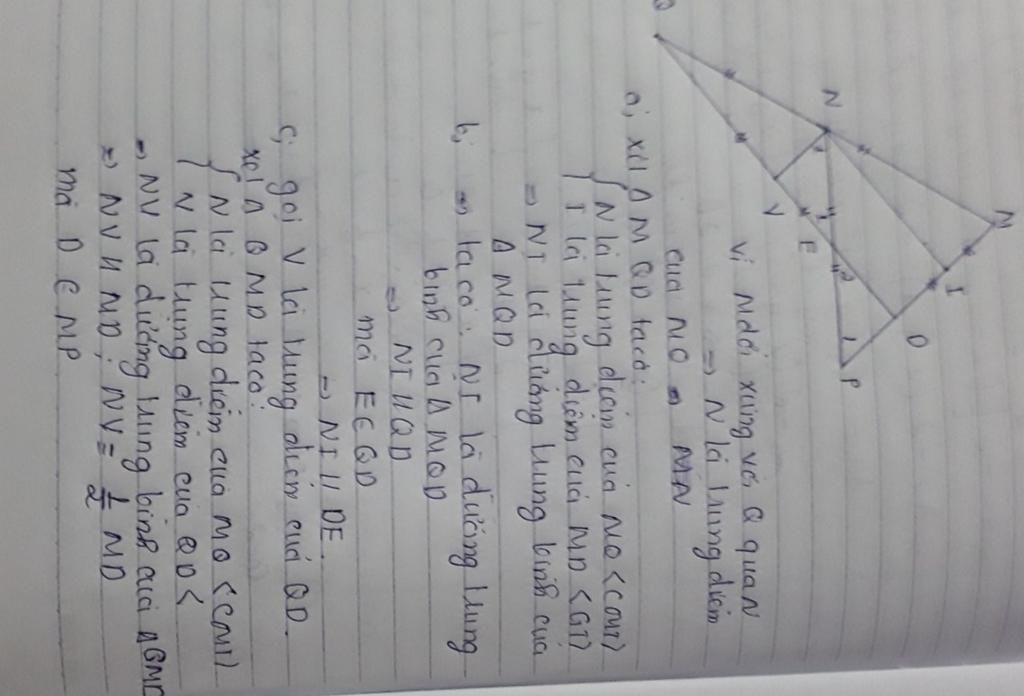 Q
N
M
V
E
I
D
P
1
1
2
1
Vì M đối xứng với Q qua N
⇒ N là trung điểm
của MQ ⇒ MN
a; xét Δ MQD ta có:
{ N là trung điểm của MQ < CMT>
I là trung điểm của MD < GT>
⇒ NI là đường trung bình của
Δ MQD
b; ⇒ ta có: NI là đường trung
bình của Δ MQD
⇒ NI // QD
mà E ∈ QD
⇒ NI // DE
c; gọi V là trung điểm của QD.
xét Δ QMD ta có:
{ N là trung điểm của MQ < CMT>
N là trung điểm của QD <
⇒ NV là đường trung bình của Δ QMD
⇒ NV // MD; NV = 1/2 MD
mà D ∈ MP